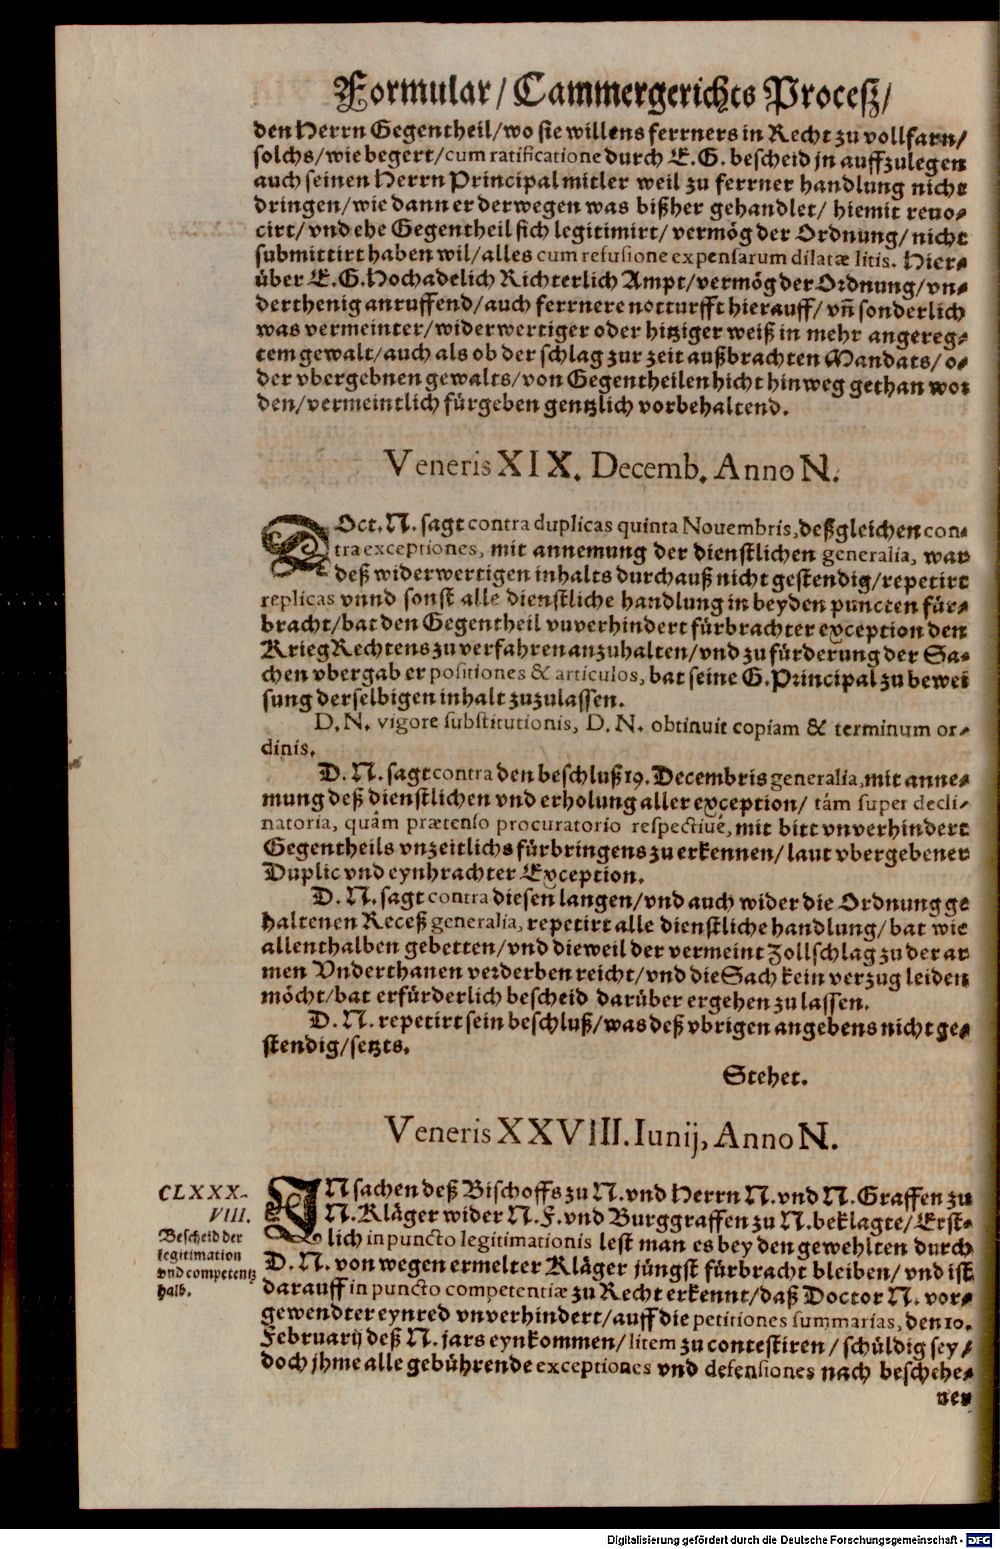 Formular/ Cammergerichts Proceß/
den Herrn Gegentheil/ wo sie willens ferrners in Recht zu vollfarn/
solchs/ wie begert/ cum ratificatione durch E.G. bescheid jn auffzulegen
auch seinen Herrn Principal mitler weil zu ferrner handlung nicht
dringen/ wie dann er derwegen was bißher gehandlet/ hiemit reuo-
cirt/ vnd ehe Gegentheil sich legitimirt/ vermög der Ordnung/ nicht
submittirt haben wil/ alles cum refusione expensarum dilatæ litis. Hier-
über E.G. Hochadelich Richterlich Ampt/ vermög der Ordnung/ vn-
derthenig anruffend/ auch ferrnere notturfft hierauff/ vñ sonderlich
was vermeinter/ widerwertiger oder hitziger weiß in mehr angereg-
tem gewalt/ auch als ob der schlag zur zeit außbrachten Mandats/ o-
der vbergebnen gewalts/ von Gegentheilen hicht hinweg gethan wor
den/ vermeintlich fürgeben gentzlich vorbehaltend.
Veneris XIX. Decemb. Anno N.
DOct. N. sagt contra duplicas quinta Nouembris, deßgleichen con-
tra exceptiones, mit annemung der dienstlichen generalia, war
deß widerwertigen inhalts durchauß nicht gestendig/ repetirt
replicas vnnd sonst alle dienstliche handlung in beyden puncten für-
bracht/ bat den Gegentheil vnverhindert fürbrachter exception den
Krieg Rechtens zu verfahren anzuhalten/ vnd zu fürderung der Sa-
chen vbergab er positiones & articulos, bat seine G. Principal zu bewei
sung derselbigen inhalt zuzulassen.
D. N. vigore substitutionis, D. N. obtinuit copiam & terminum or-
dinis.
D. N. sagt contra den beschluß 19. Decembris generalia, mit anne-
mung deß dienstlichen vnd erholung aller exception/ tâm super decli-
natoria, quâm prætenso procuratorio respectiuè, mit bitt vnverhindert
Gegentheils vnzeitlichs fürbringens zu erkennen/ laut vbergebener
Duplic vnd eynbrachter Exception.
D. N. sagt contra diesen langen/ vnd auch wider die Ordnung ge
haltenen Receß generalia, repetirt alle dienstliche handlung/ bat wie
allenthalben gebetten/ vnd dieweil der vermeint Zollschlag zu der ar
men Vnderthanen verderben reicht/ vnd die Sach kein verzug leiden
möcht/ bat erfürderlich bescheid darüber ergehen zu lassen.
D. N. repetirt sein beschluß/ was deß vbrigen angebens nicht ge-
stendig/ setzts.
Stehet.
Veneris XXVIII. Iunij, Anno N.
CLXXX-
VIII.
Bescheid der
legitimation
vnd competentz
halb.
IN sachen deß Bischoffs zu N. vnd Herrn N. vnd N. Graffen zu
N. Kläger wider N. F. vnd Burggraffen zu N. beklagte/ Erst-
lich in puncto legitimationis lest man es bey den gewehlten durch
D. N. von wegen ermelter Kläger jüngst fürbracht bleiben/ vnd ist
darauff in puncto competentiæ zu Recht erkennt/ daß Doctor N. vor-
gewendter eynred vnverhindert/ auff die petitiones summarias, den 10.
Februarij deß N. jars eynkommen/ litem zu contestiren/ schüldig sey/
doch jhme alle gebührende exceptiones vnd defensiones nach beschehe-
nen
Digitalisierung gefördert durch die Deutsche Forschungsgemeinschaft - DFG